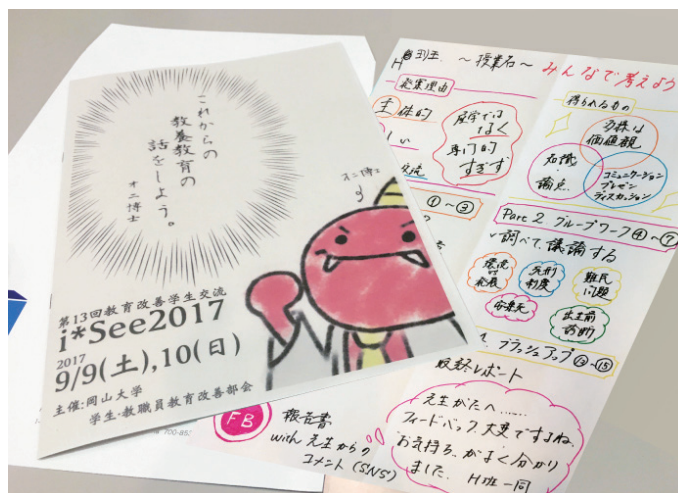 これからの
教養教育の
話をしよう。
オニ博士
オニ博士
第13回教育改善学生交流
i*See2017
2017
9/9(土),10(日)
主催:岡山大学
学生・教職員教育改善部会
～授業名～ みんなで考えよう
発案理由
主体的
しい
交流
座学では
なく
専門的
すぎず
得られるもの
多様な
価値観
知識・
論点
コミュニケーション
プレゼン
ディスカッション
①～③
Part 2. グループワーク ④～⑦
調べて、議論する
死刑
制度
難民
問題
安楽死
出生前
診断
ブラッシュアップ ～⑮
最終レポート
FB
報告書
with 先生からの
コメント(SNS)
先生がたへ……
フィードバック、大変ですね。
お気持ち、がよく分かり
ました。 H班一同